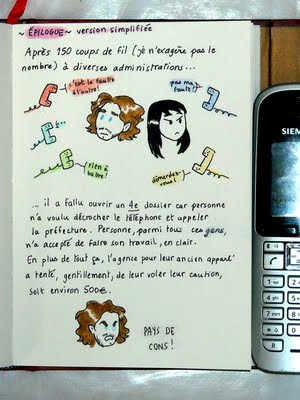 ~ ÉPILOGUE ~ version simplifiée
Après 150 coups de fil (je n'exagère pas le
nombre) à diverses administrations...
c'est la faute
à l'autre!
pas ma
faute!
rien à
battre!
démerdez-
vous!
... il a fallu ouvrir un 4e dossier car personne
n'a voulu décrocher le téléphone et appeler
la préfecture. Personne, parmi tous ces gens,
n'a accepté de faire son travail, en clair.
En plus de tout ça, l'agence pour leur ancien appart'
a tenté, gentillement, de leur voler leur caution,
soit environ 500€.
PAYS DE
CONS!
SIEM